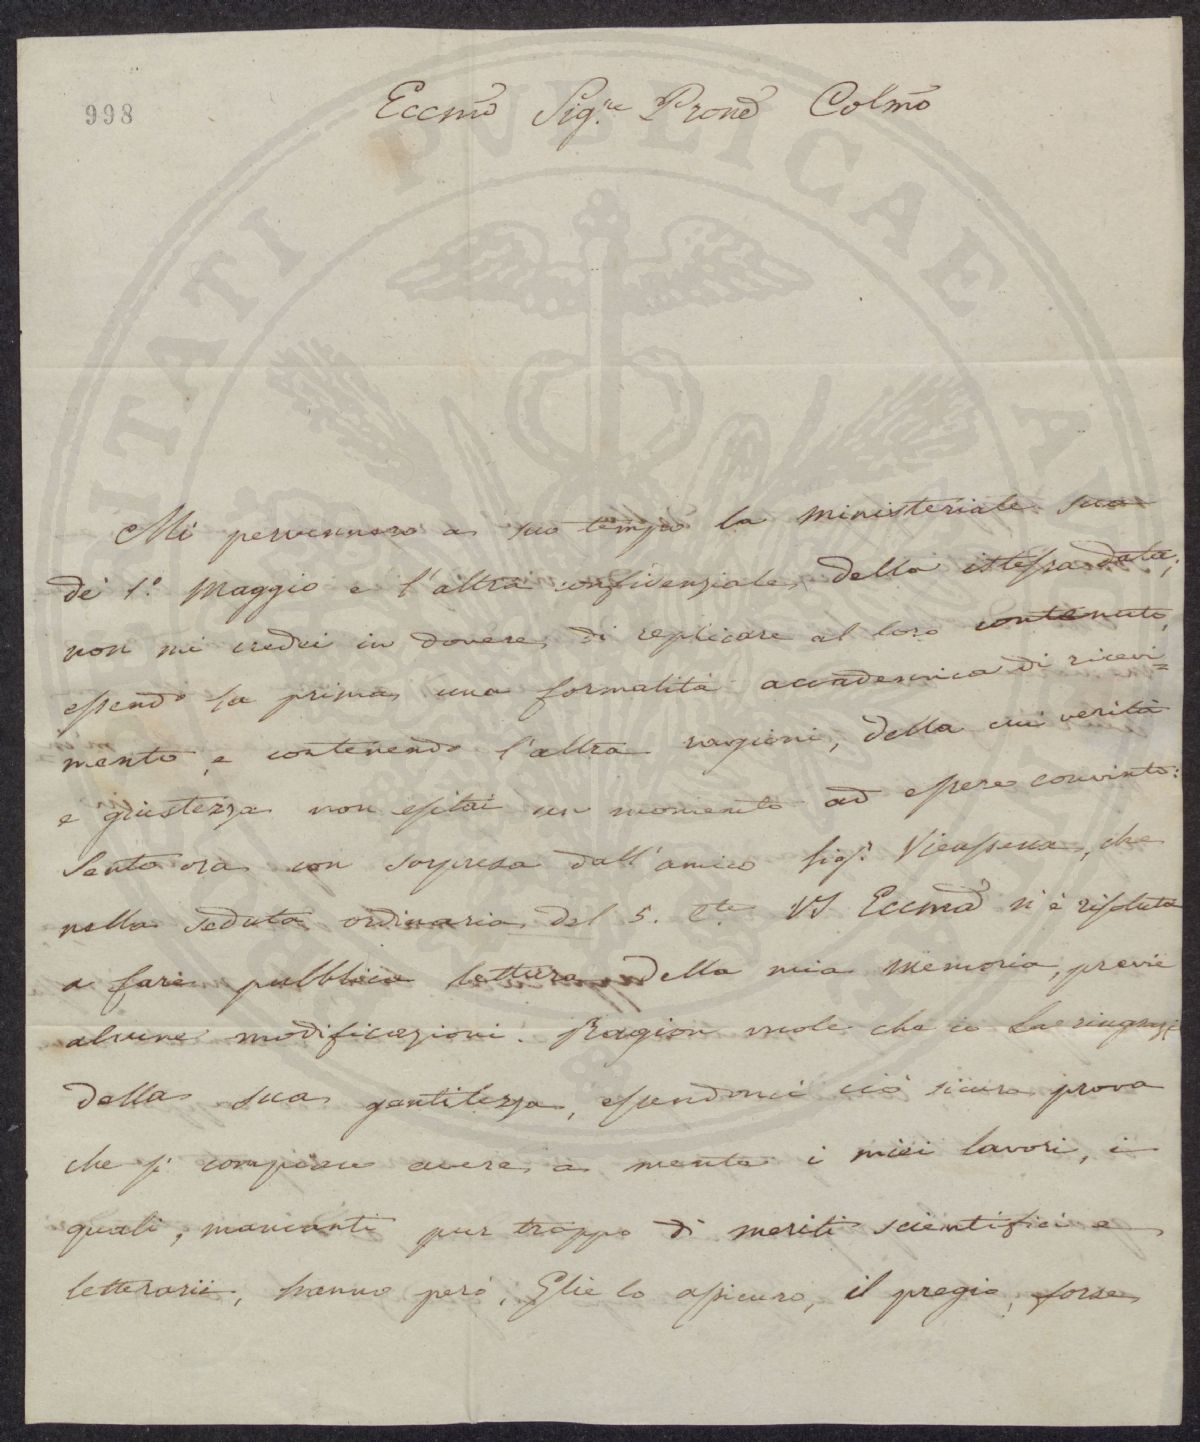 998
Eccmo Sig.re Prone Colmo
Mi pervennero a suo tempo la ministeriale sua
de' 1.º Maggio e l'altra confidenziale della istessa data;
non mi credei in dovere di replicare al loro contenuto,
essendo la prima una formalità accademica di ricevi=
mento, e contenendo l'altra ragioni, della cui verità
e giustezza non esitai un momento ad essere convinto:
Sento ora con sorpresa dall'amico Sigr. che
nella seduta ordinaria del 5. VS Eccma si è risoluta
a fare pubblica lettura della mia Memoria, previe
alcune modificazioni. Ragion vuole che io La ringrazj
della sua gentilezza, essendomi ciò sicura prova
che si compiace avere a mente i miei lavori, i
quali, mancanti pur troppo di meriti scientifici e
letterarii, hanno però, Glie lo assicuro, il pregio, forse